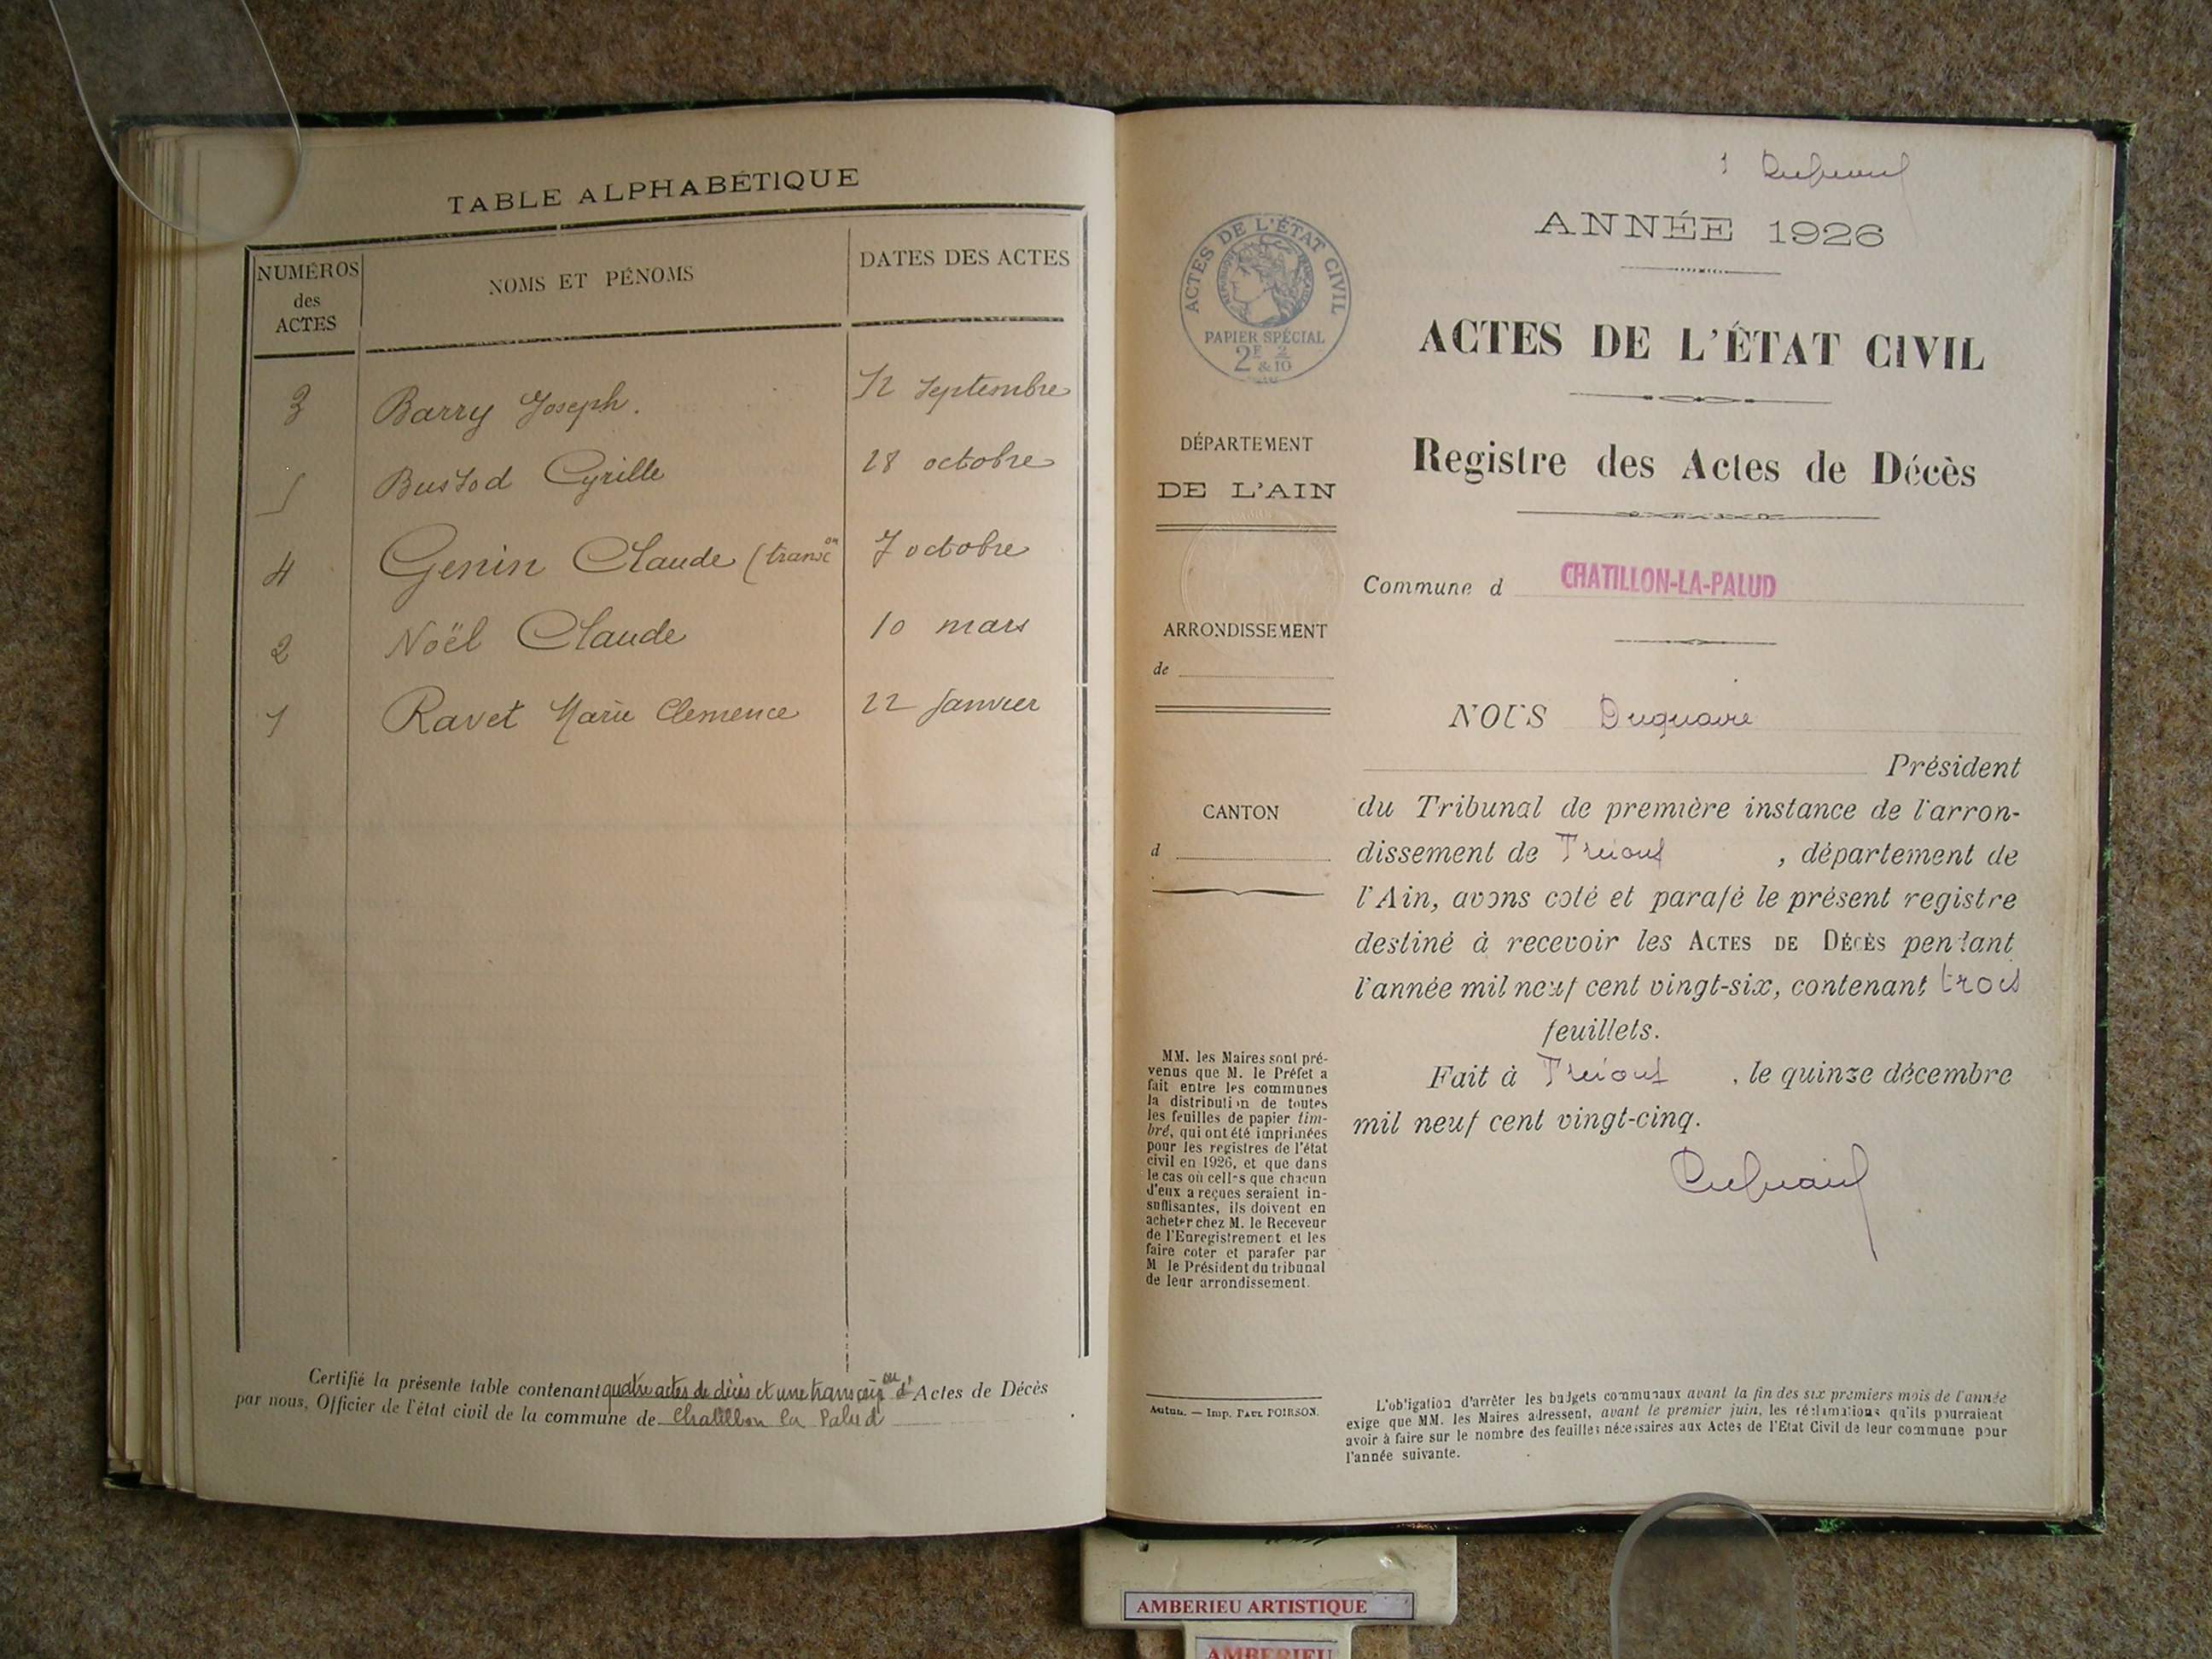 TABLE ALPHABÉTIQUE
NUMÉROS des ACTES
NOMS ET PÉNOMS
DATES DES ACTES
3 Barry Joseph. 12 Septembre
5 Bustod Cyrille 28 octobre
4 Genin Claude (transcon 7 octobre
2 Noël Claude 10 mars
1 Ravet Marie Clemence 22 Janvier
Certifié la présente table contenant quatre actes de décès et une transcripon d'Actes de Décès
par nous, Officier de l'état civil de la commune de Chatillon la Palud
1
ANNÉE 1926
ACTES DE L'ÉTAT CIVIL
RÉPUBLIQUE FRANÇAISE
PAPIER SPÉCIAL
2F 2
& 10
ACTES DE L'ÉTAT CIVIL
Registre des Actes de Décès
DÉPARTEMENT
DE L'AIN
Commune d CHATILLON-LA-PALUD
ARRONDISSEMENT
de
CANTON
d
NOUS Duquaire
Président
du Tribunal de première instance de l'arron-
dissement de Trévoux, département de
l'Ain, avons coté et parafé le présent registre
destiné à recevoir les ACTES DE DÉCÈS pendant
l'année mil neuf cent vingt-six, contenant trois
feuillets.
Fait à Trévoux, le quinze décembre
mil neuf cent vingt-cinq.
MM. les Maires sont pré-
venus que M. le Préfet a
fait entre les communes
la distribution de toutes
les feuilles de papier tim-
bré, qui ont été imprimées
pour les registres de l'état
civil en 1926, et que dans
le cas où celles que chacun
d'eux a reçues seraient in-
suffisantes, ils doivent en
acheter chez M. le Receveur
de l'Enregistrement et les
faire coter et parafer par
M le Président du tribunal
de leur arrondissement.
Autun. — Imp. PAUL POIRSON.
L'obligation d'arrêter les budgets communaux avant la fin des six premiers mois de l'année
exige que MM. les Maires adressent, avant le premier juin, les réclamations qu'ils pourraient
avoir à faire sur le nombre des feuilles nécessaires aux Actes de l'Etat Civil de leur commune pour
l'année suivante.
AMBERIEU ARTISTIQUE
AMBERIEU